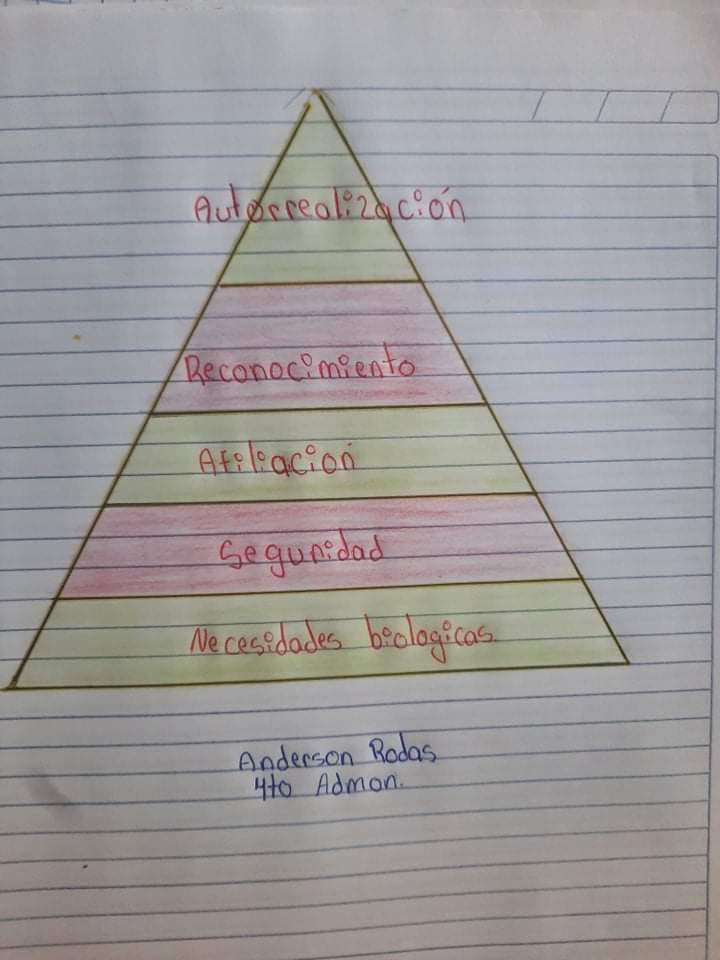 Autorrealización
Reconocimiento
Afiliación
Seguridad
Necesidades biologicas
Anderson Rodas
4to Admon.